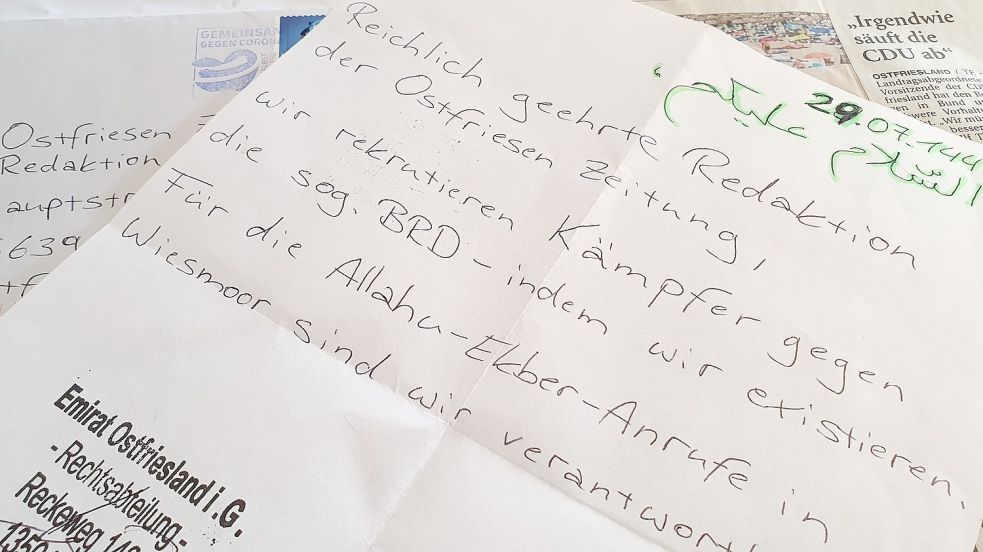 GEMEINSAM
GEGEN CORONA
Ostfriesen
Redaktion
auptstr
639
Reichlich geehrte Redaktion
der Ostfriesen Zeitung,
wir rekrutieren Kämpfer gegen
die sog. BRD – indem wir existieren.
Für die Allahu-Ekber-Anrufe in
Wiesmoor sind wir verantwort
29.07.144
السّلام عليكم
Emirat Ostfriesland i. G.
- Rechtsabteilung -
Reckeweg
„Irgendwie
säuft die
CDU ab“
OSTFRIESLAND / TE -
Landtagsabgeordnete
Vorsitzende der CD
friesland hat den Be
en in Bund u
were Vorhalt
„Wir mü
besser